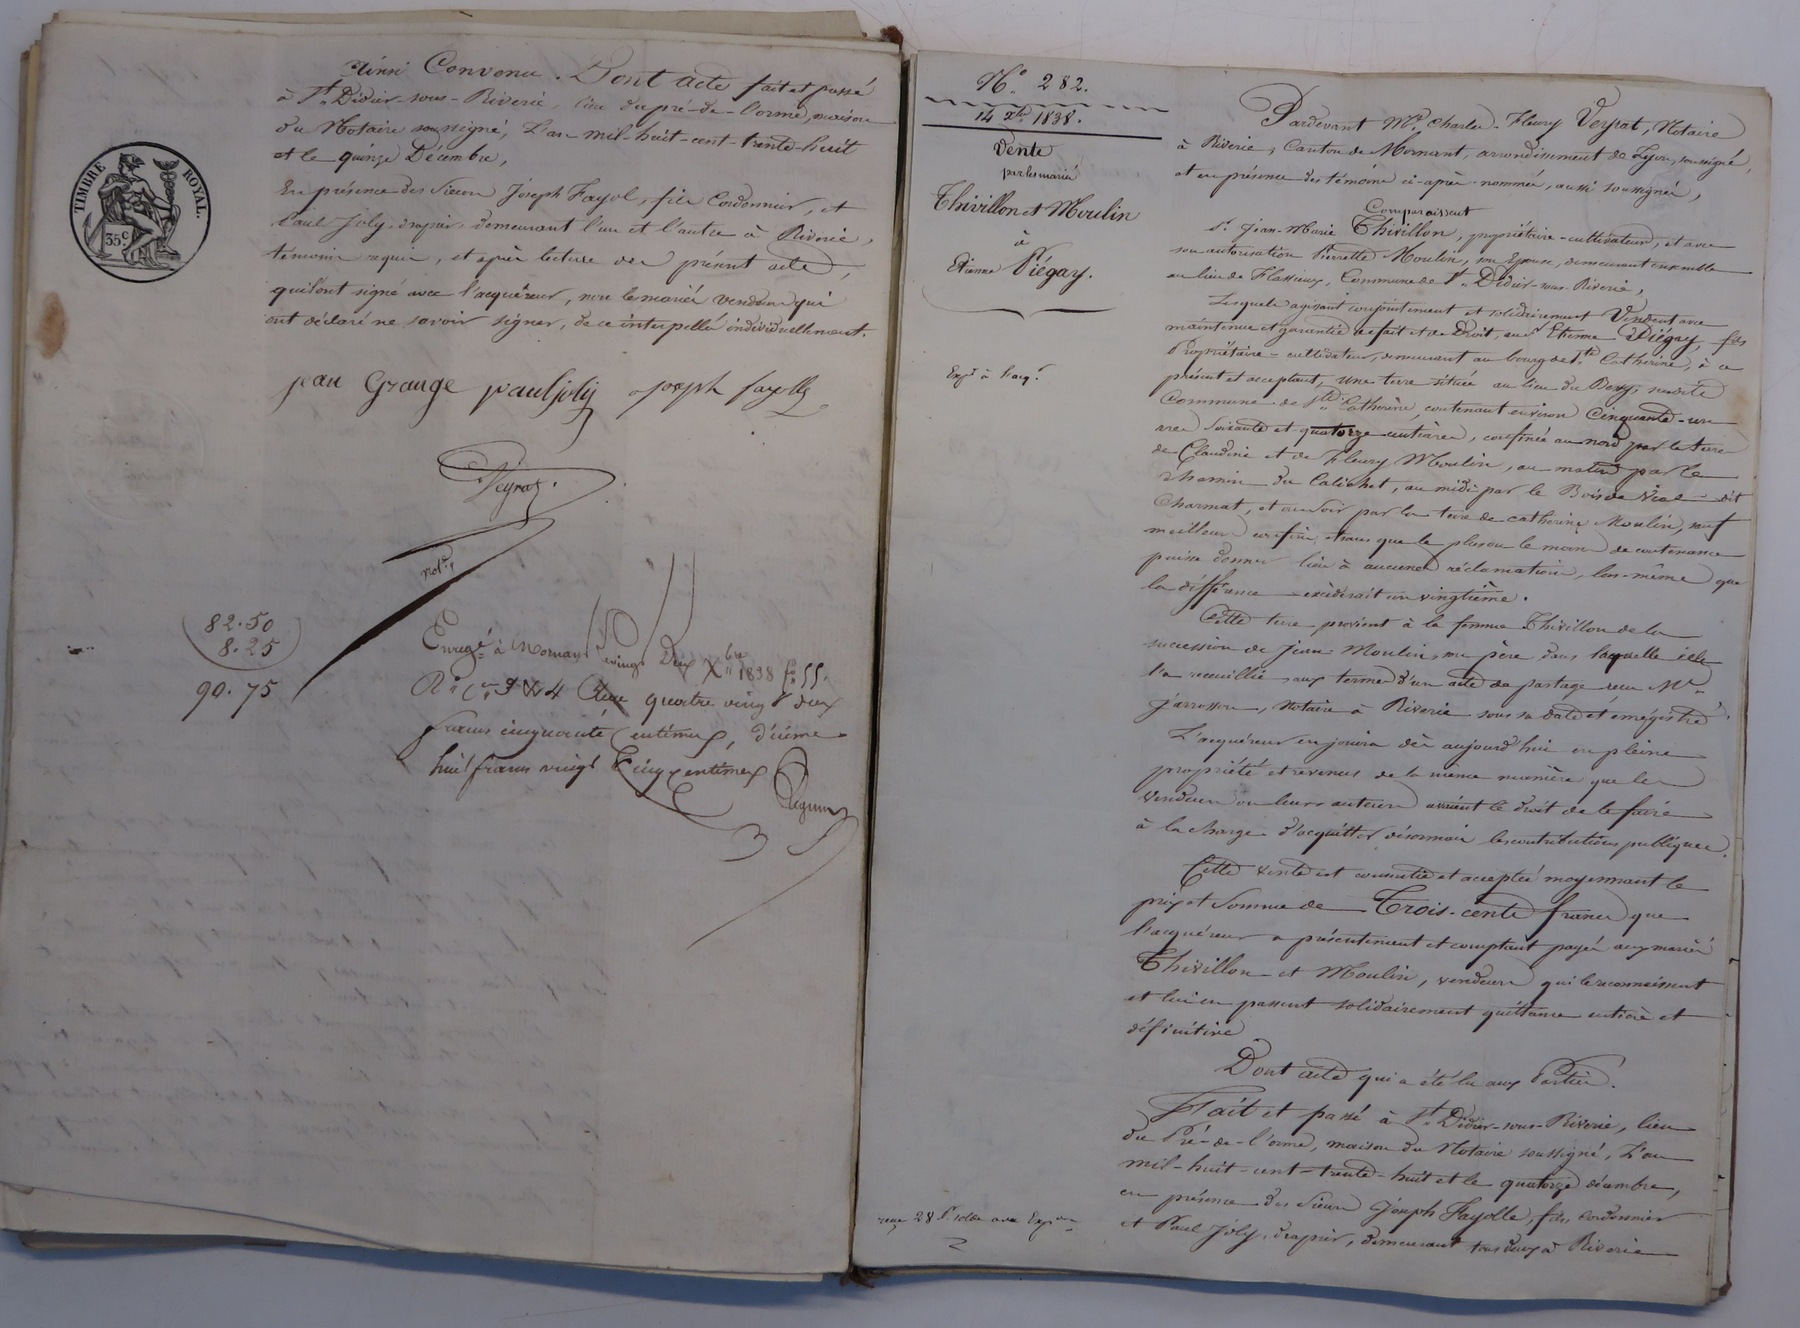 Ainsi Convenu. Dont acte fait et passé
à St. Didier-sous-Riverie, lieu du pré-de-l'orme, maison
du Notaire soussigné, L'an mil-huit-cent-trente-huit
et le quinze Décembre,
En présence des Sieurs Joseph Fayol, fils Cordonnier, et
Paul Joly, drapier, demeurant l'un et l'autre à Riverie,
témoins requis, et après lecture des présent acte,
qu'ils ont signé avec l'acquéreur, non les mariés vendeurs qui
ont déclaré ne savoir signer, de ce interpellés individuellement.
TIMBRE ROYAL.
35c
jean Grange paul joly joseph fayolle
Veyrat.
notre
82.50
8.25
90.75
Enregé à Mornant vingt Deux Xbre 1838 fo 55.
Ro cs 3 & 4 Reçu quatre vingt deux
francs cinquante centimes, décime
huit francs vingt Cinq centimes
No. 282.
14 Xbre 1838.
Vente
par les mariés
Thivillon et Moulin
à
Etienne Piégay.
Expn à l'acqr
Pardevant Me. Charles-Fleury Veyrat, Notaire
à Riverie, Canton de Mornant, arrondissement de Lyon, soussigné,
et en présence des témoins ci-après nommés, aussi soussignés,
Comparaissent
Sr. Jean-Marie Thivillon, propriétaire-cultivateur, et avec
son autorisation Pierrette Moulin, son Epouse, demeurant ensemble
au lieu de Flassieux, Commune de St. Didier-sous-Riverie,
Lesquels agissant conjointement et solidairement Vendent avec
maintenue et garantie de fait et de Droit, au Sr Etienne Piégay, fils
Propriétaire-cultivateur, demeurant au bourg de Ste Catherine, à ce
présent et acceptant, une terre située au lieu du Bessy, susdite
Commune de Ste. Catherine, contenant environ Cinquante-un
ares soixante et quatorze centiares, confinée au nord par la terre
de Claudine et de Fleury Moulin, au matin par le
chemin du Calichet, au midi par le Bois de Viole dit
Charmat, et au soir par la terre de Catherine Moulin, sauf
meilleurs confins, et sans que le plus ou le moins de contenance
puisse donner lieu à aucunes réclamations, lors-même que
la différence excéderait un vingtième.
Cette terre provient à la femme Thivillon de la
succession de Jean Moulin, son père dans laquelle elle
l'a recueillie aux termes d'un acte de partage reçu Me.
Jarrosson, Notaire à Riverie sous sa date et enregistré.
L'acquéreur en jouira dès aujourd'hui en pleine
propriété et revenus de la même manière que les
vendeurs ou leurs auteurs avaient le droit de le faire
à la charge d'acquitter désormais les contributions publiques.
Cette vente est consentie et acceptée moyennant le
prix et somme de Trois-cents francs que
l'acquéreur a présentement et comptant payés aux mariés
Thivillon et Moulin, vendeurs qui le reconnaissent
et lui en passent solidairement quittance entière et
définitive
Dont acte qui a été lu aux Parties.
Fait et passé à St. Didier-sous-Riverie, lieu
du Pré-de-l'orme, maison du Notaire soussigné, L'an
mil-huit-cent-trente-huit et le quatorze décembre,
en présence des Sieurs Joseph Fayolle, fils, cordonnier
et Paul Joly, drapier, demeurant tous deux à Riverie
reçu 28 f. solde avec Expon